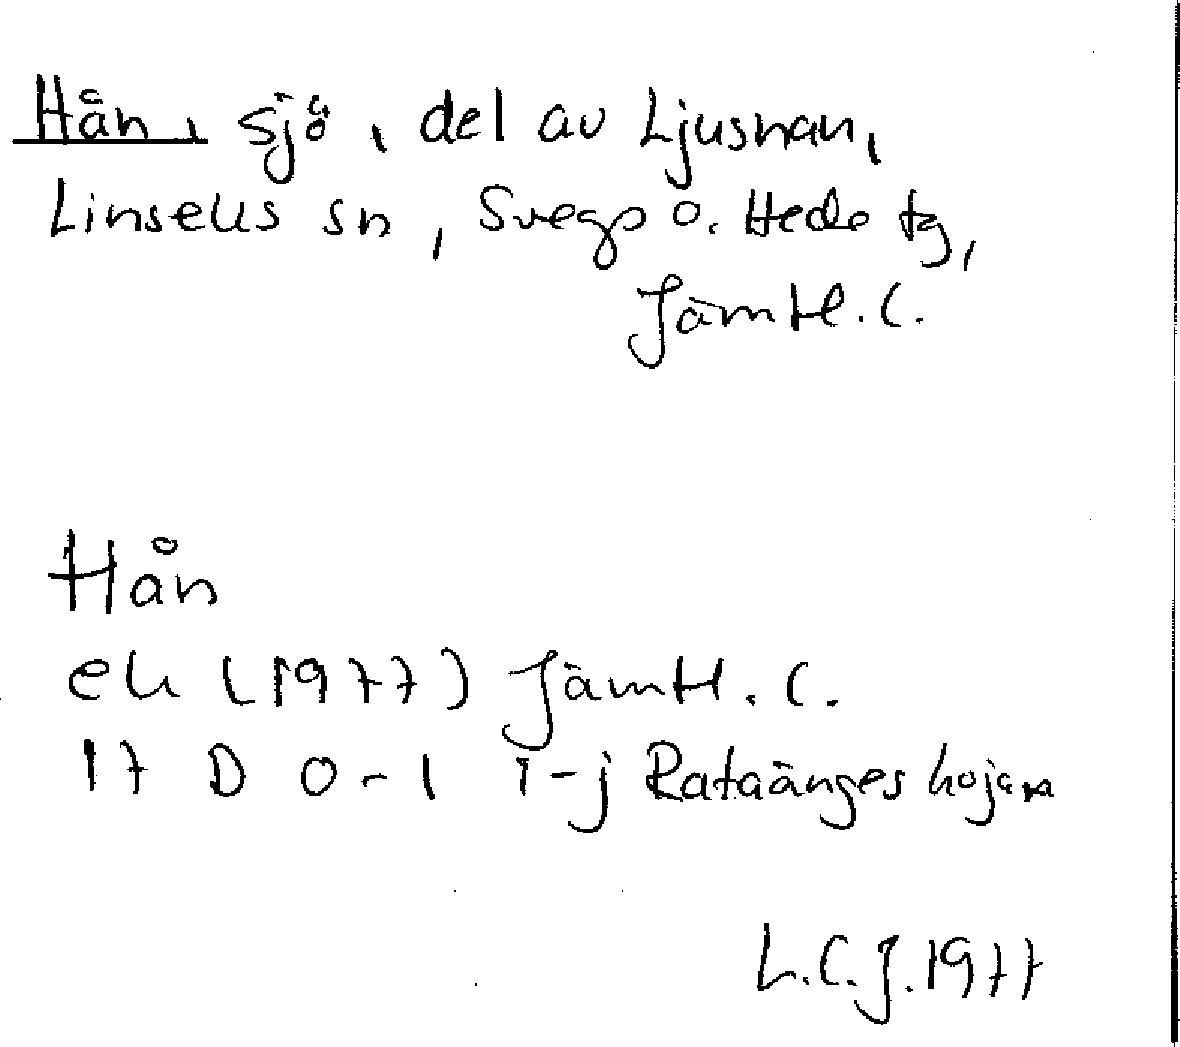 Hån, sjö, del av Ljusnan,
Linsells sn, Svegs o. Hede tg,
Jämtl. C.
Hån
ek (1977) Jämtl. C.
17 D 0-1 i-j Rataänges
L.C.J. 1977